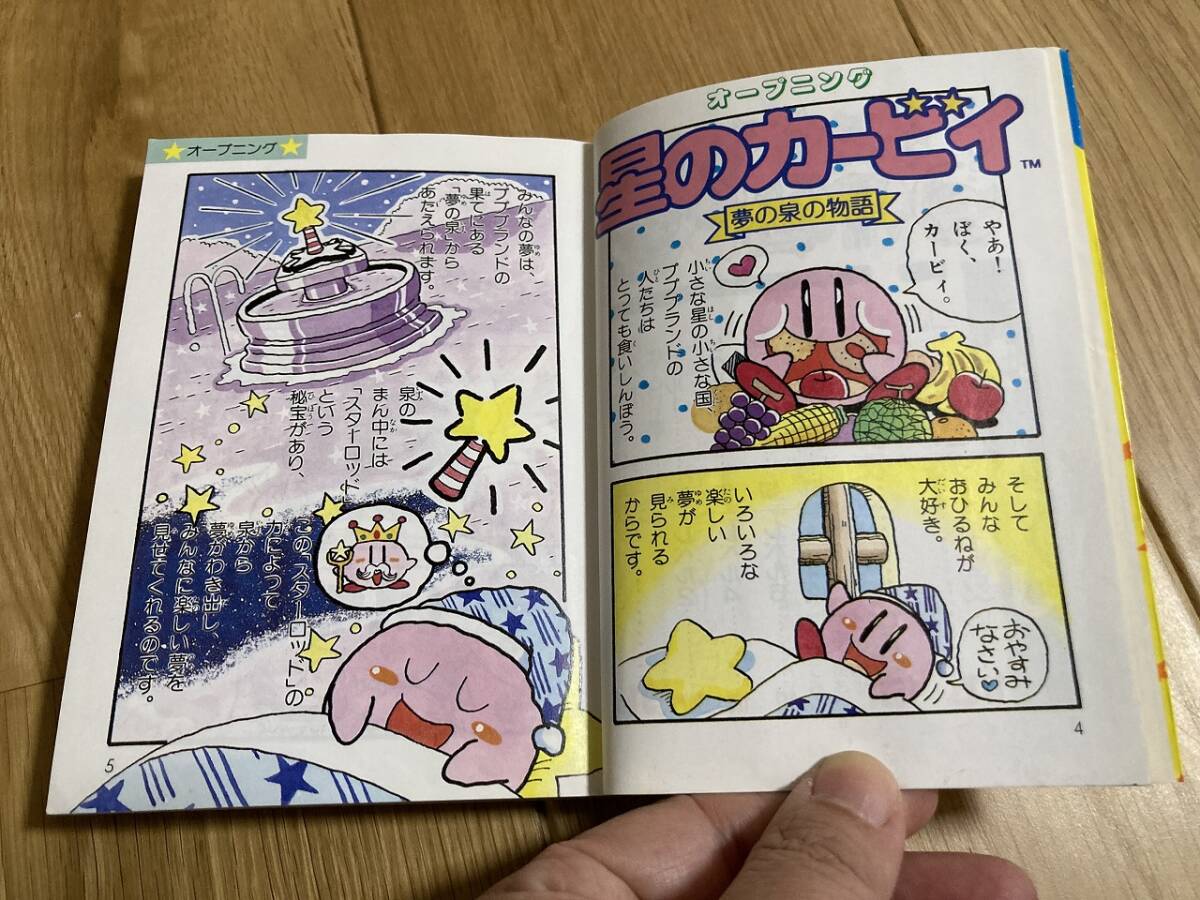 オープニング
星のカービィ
TM
夢の泉の物語
やあ!
ぼく、
カービィ。
小さな星の小さな国、
プププランドの
人たちは
とっても食いしんぼう。
そして
みんな
おひるねが
大好き。
いろいろな
楽しい
夢が
見られる
からです。
おやすみ
なさい
4
オープニング
みんなの夢は、
プププランドの
果てにある
「夢の泉」から
あたえられます。
泉の
まん中には
「スターロッド」
という
秘宝があり、
この「スターロッド」の
力によって
泉から
夢がわき出し、
みんなに楽しい夢を
見せてくれるのです。
5